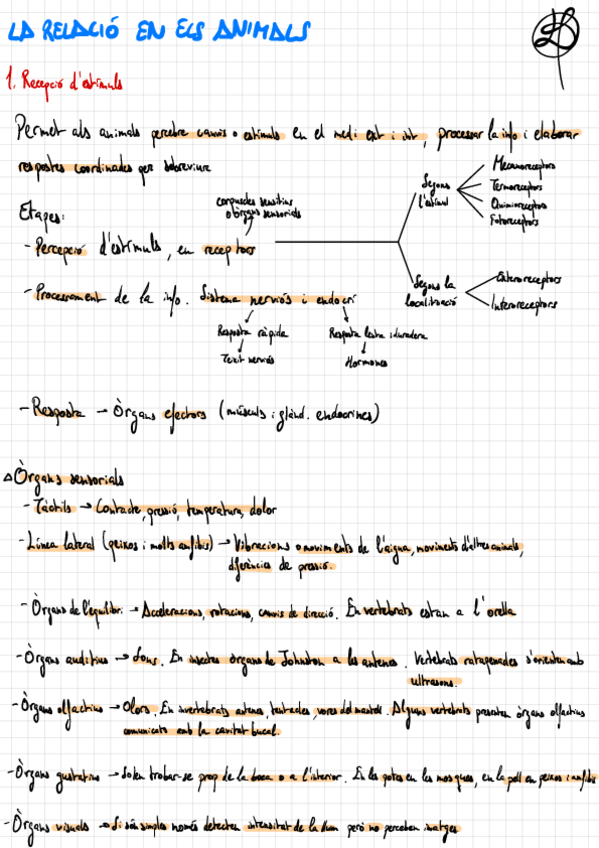 LA RELACIÓ EN ELS ANIMALS
1. Recepció d'estímuls
Permet als animals percebre canvis o estímuls en el medi ext i int, processar la info i elaborar
respostes coordinades per sobreviure
Etapes:
corpuscles sensitius
o òrgans sensorials
- Percepció d'estímuls, en receptors
Segons
l'estímul
Mecanoreceptors
Termoreceptors
Quimioreceptors
Fotoreceptors
Segons la
localització
Exteroreceptors
Interoreceptors
- Processament de la info. Sistema nerviós i endocrí
Resposta ràpida
Teixit nerviós
Resposta lenta i duradera
Hormones
- Resposta → Òrgans efectors (músculs i glànd. endocrines)
Òrgans sensorials
- Tàctils → Contacte, pressió, temperatura, dolor
- Línea lateral (peixos i molts amfibis) → Vibracions o moviments de l'aigua, moviments d'altres animals,
diferències de pressió.
- Òrgans de l'equilibri → Acceleracions, rotacions, canvis de direcció. En vertebrats estan a l'orella
- Òrgans auditius → Sons. En insectes òrgans de Johnston a les antenes. Vertebrats ratapenades s'orienten amb
ultrasons.
- Òrgans olfactius → Olors. En invertebrats antenes, tentacles, vores del mantell. Alguns vertebrats presenten òrgans olfactius
comunicats amb la cavitat bucal.
- Òrgans gustatius → Solen trobar-se prop de la boca o a l'interior. En les potes en les mosques, en la pell en peixos i amfibis
- Òrgans visuals → Si són simples només detecten intensitat de la llum però no perceben imatges